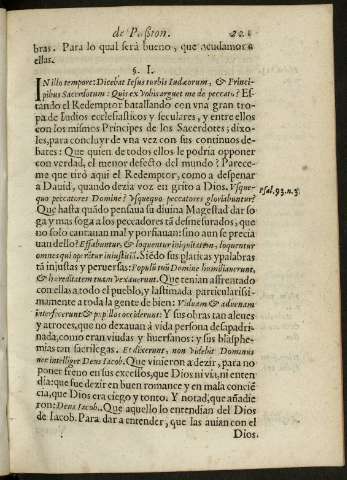 de Passion. 221
bras. Para lo qual será bueno, que acudamos a
ellas.
§. I.
IN illo tempore: Dicebat Iesus turbis Iudæorum, & Princi-
pibus Sacerdotum: Quis ex vobis arguet me de peccato? Es-
tando el Redemptor batallando con vna gran tro-
pa de Iudios ecclesiasticos y seculares, y entre ellos
con los mismos Principes de los Sacerdotes; dixo-
les, para concluyr de vna vez con sus continuos de-
bates: Que quien de todos ellos le podria opponer
con verdad, el menor defecto del mundo? Parece-
me que tirò aqui el Redemptor, como a despenar
a Dauid, quando dezia voz en grito a Dios. Vsque-
quo peccatores Domine? Vsquequo peccatores gloriabuntur?
Psal. 93. n. 3.
Que hasta quãdo pensaua su diuina Magestad dar so-
ga y mas soga a los peccadores tã desmesurados, que
no solo cantauan mal y porfiauan: sino aun se precia
uan dello? Effabuntur, & loquentur iniquitatem, loquentur
omnes qui operãtur iniustitiã. Siẽdo sus platicas y palabras
tã injustas y peruersas: Populũ tuũ Domine humiliauerunt,
& hæreditatem tuam vexauerunt. Que tenian affrentado
con ellas a todo el pueblo, y lastimada particularissi-
mamente a toda la gente de bien: Viduam & aduenam
interfecerunt & pupillos occiderunt: Y sus obras tan aleues
y atroces, que no dexauan à vida persona desapadri-
nada, como eran viudas y huerfanos: y sus blasphe-
mias tan sacrilegas. Et dixerunt, non videbit Dominus
nec intelliget Deus Iacob. Que vinieron a dezir, para no
poner freno en sus excessos, que Dios ni via, ni enten
dia: que fue dezir en buen romance y en mala conciẽ
cia, que Dios era ciego y tonto. Y notad, que añadie
ron: Deus Iacob. Que aquello lo entendian del Dios
de Iacob. Para dar a entender, que las auian con el
Dios.